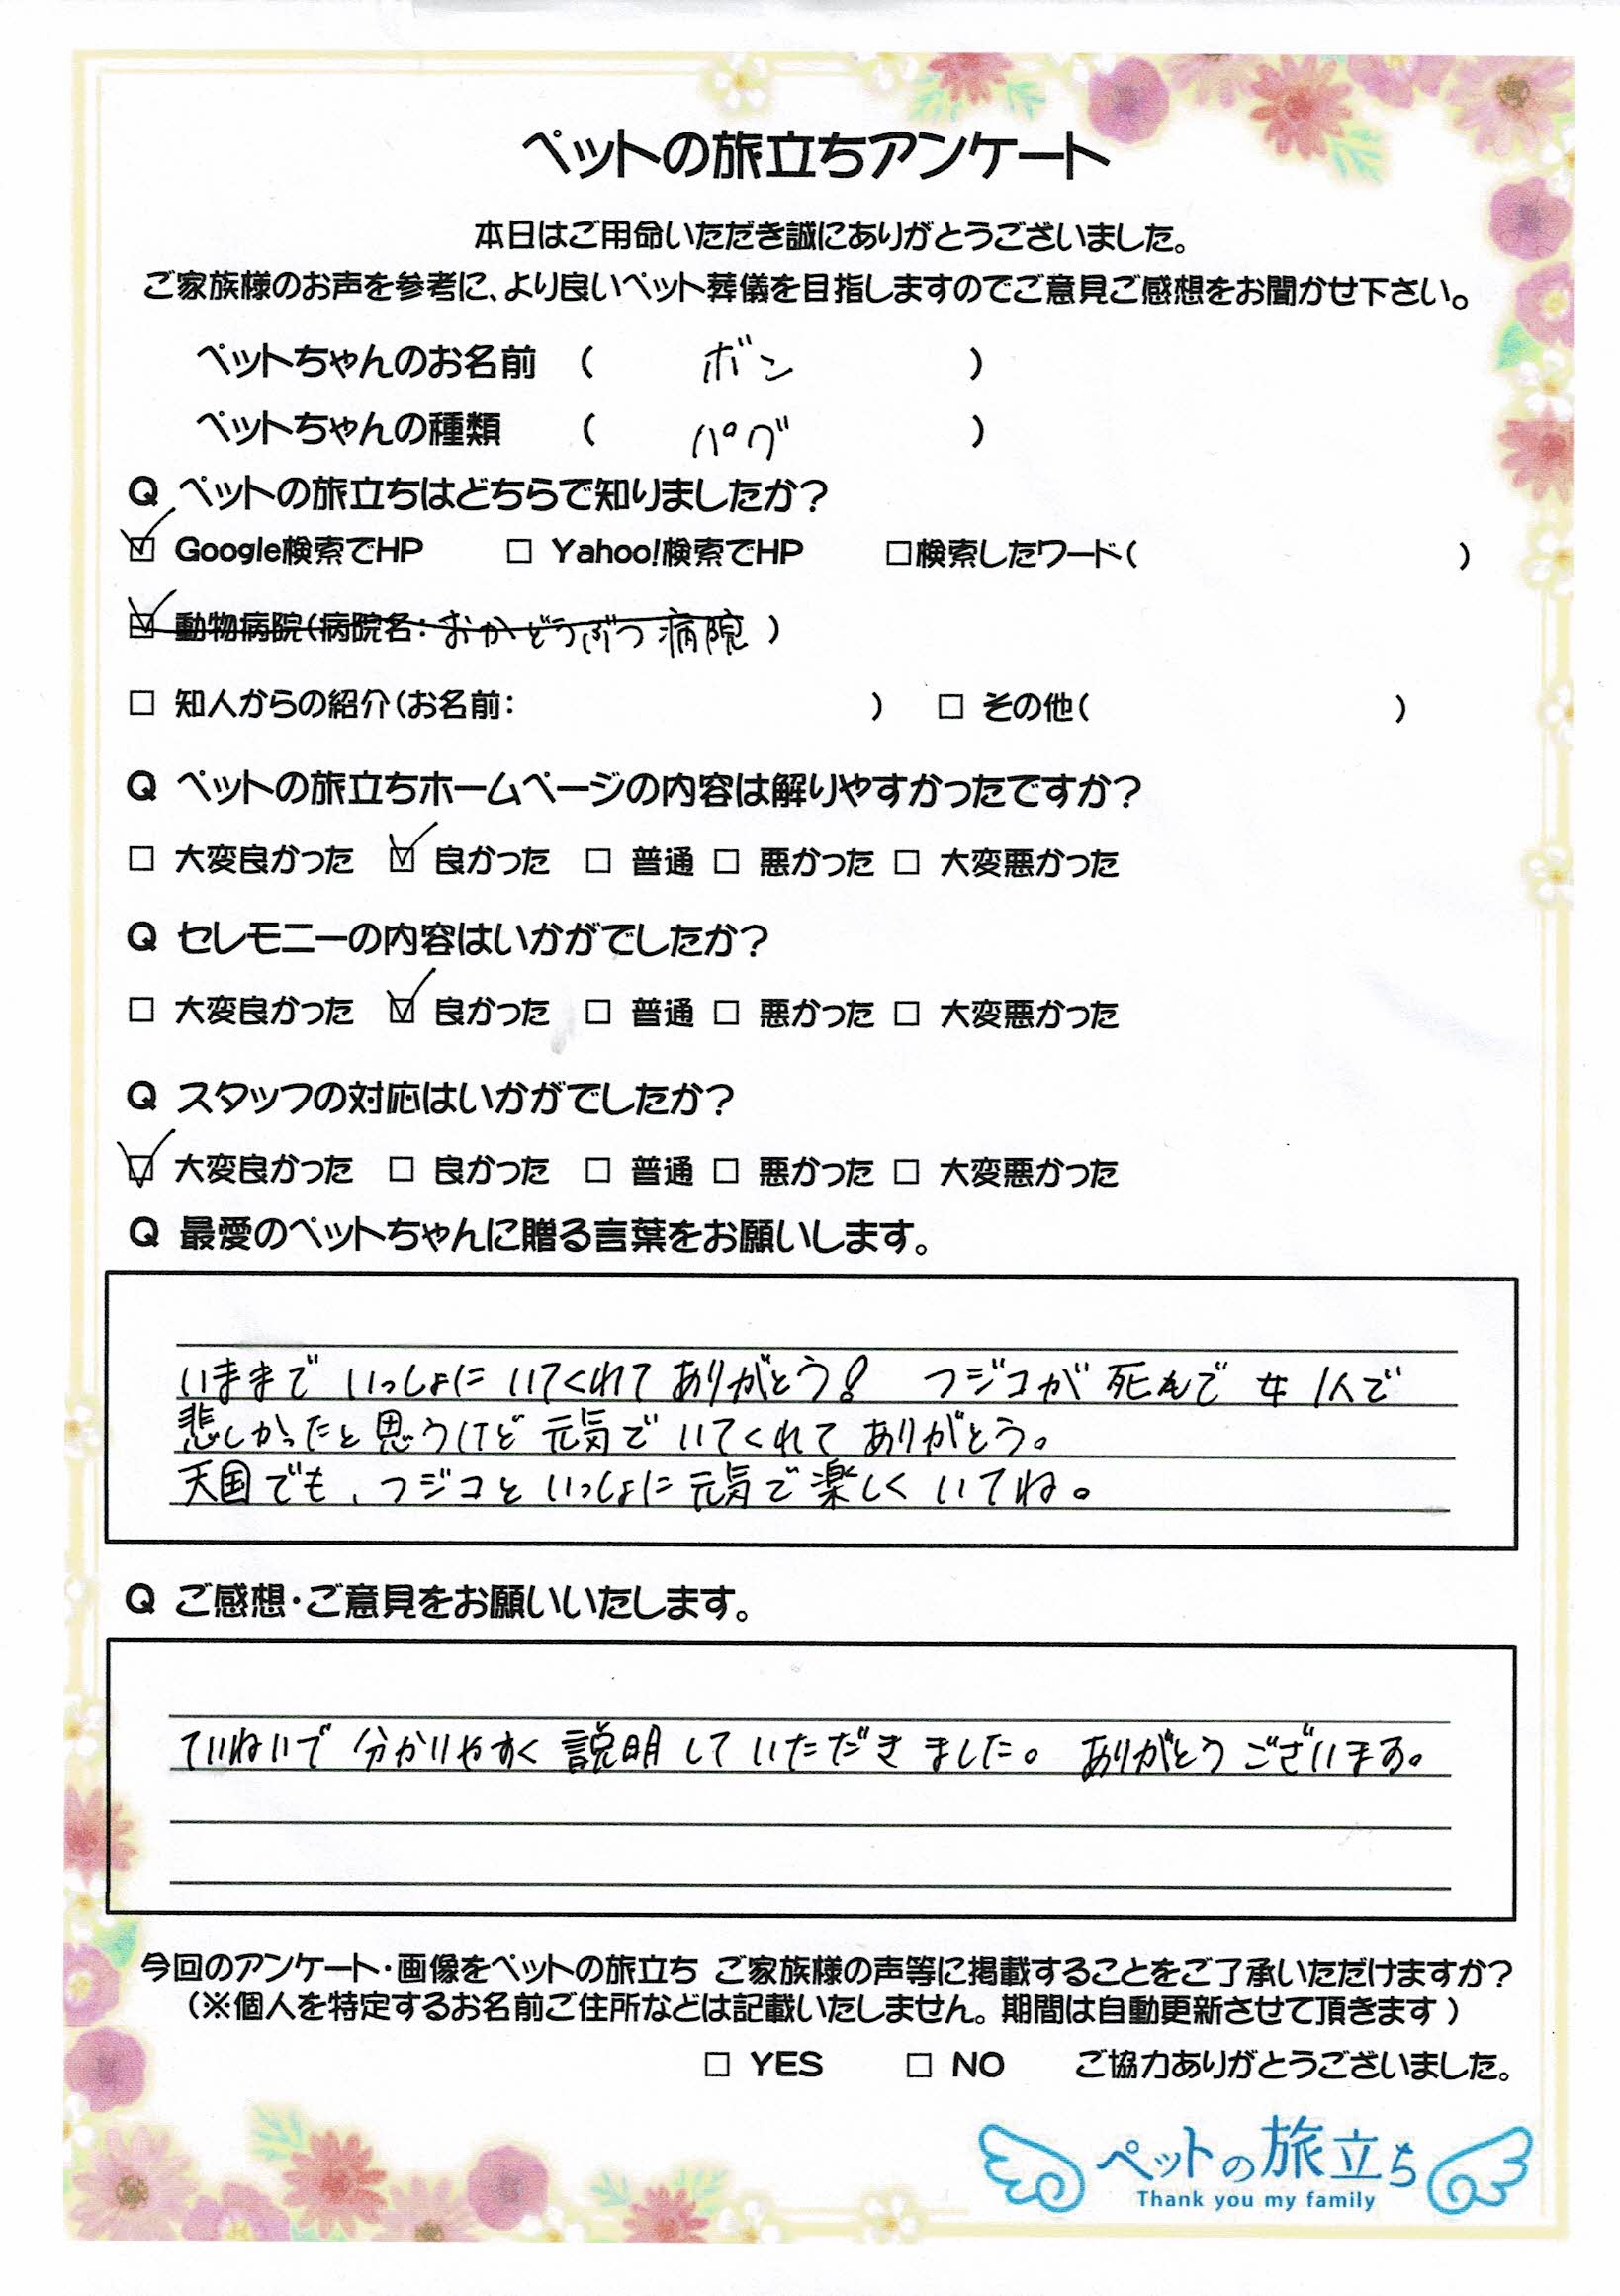 ペットの旅立ちアンケート
本日はご用命いただき誠にありがとうございました。
ご家族様のお声を参考に、より良いペット葬儀を目指しますのでご意見ご感想をお聞かせ下さい。
ペットちゃんのお名前 ( ボン )
ペットちゃんの種類 ( パグ )
Q ペットの旅立ちはどちらで知りましたか?
☑ Google検索でHP □ Yahoo!検索でHP □検索したワード( )
☑ 動物病院(病院名: おかどうぶつ病院 )
□ 知人からの紹介(お名前: ) □ その他( )
Q ペットの旅立ちホームページの内容は解りやすかったですか?
□ 大変良かった ☑ 良かった □ 普通 □ 悪かった □ 大変悪かった
Q セレモニーの内容はいかがでしたか?
□ 大変良かった ☑ 良かった □ 普通 □ 悪かった □ 大変悪かった
Q スタッフの対応はいかがでしたか?
☑ 大変良かった □ 良かった □ 普通 □ 悪かった □ 大変悪かった
Q 最愛のペットちゃんに贈る言葉をお願いします。
いままで いっしょに いてくれて ありがとう! フジコが 死んで 1人で
悲しかったと思うけど 元気で いてくれて ありがとう。
天国でも、フジコと いっしょに 元気で楽しく いてね。
Q ご感想・ご意見をお願いいたします。
ていねいで 分かりやすく 説明して いただきました。 ありがとうございます。
今回のアンケート・画像をペットの旅立ち ご家族様の声等に掲載することをご了承いただけますか?
(※個人を特定するお名前ご住所などは記載いたしません。期間は自動更新させて頂きます)
□ YES □ NO ご協力ありがとうございました。
ペットの旅立ち
Thank you my family